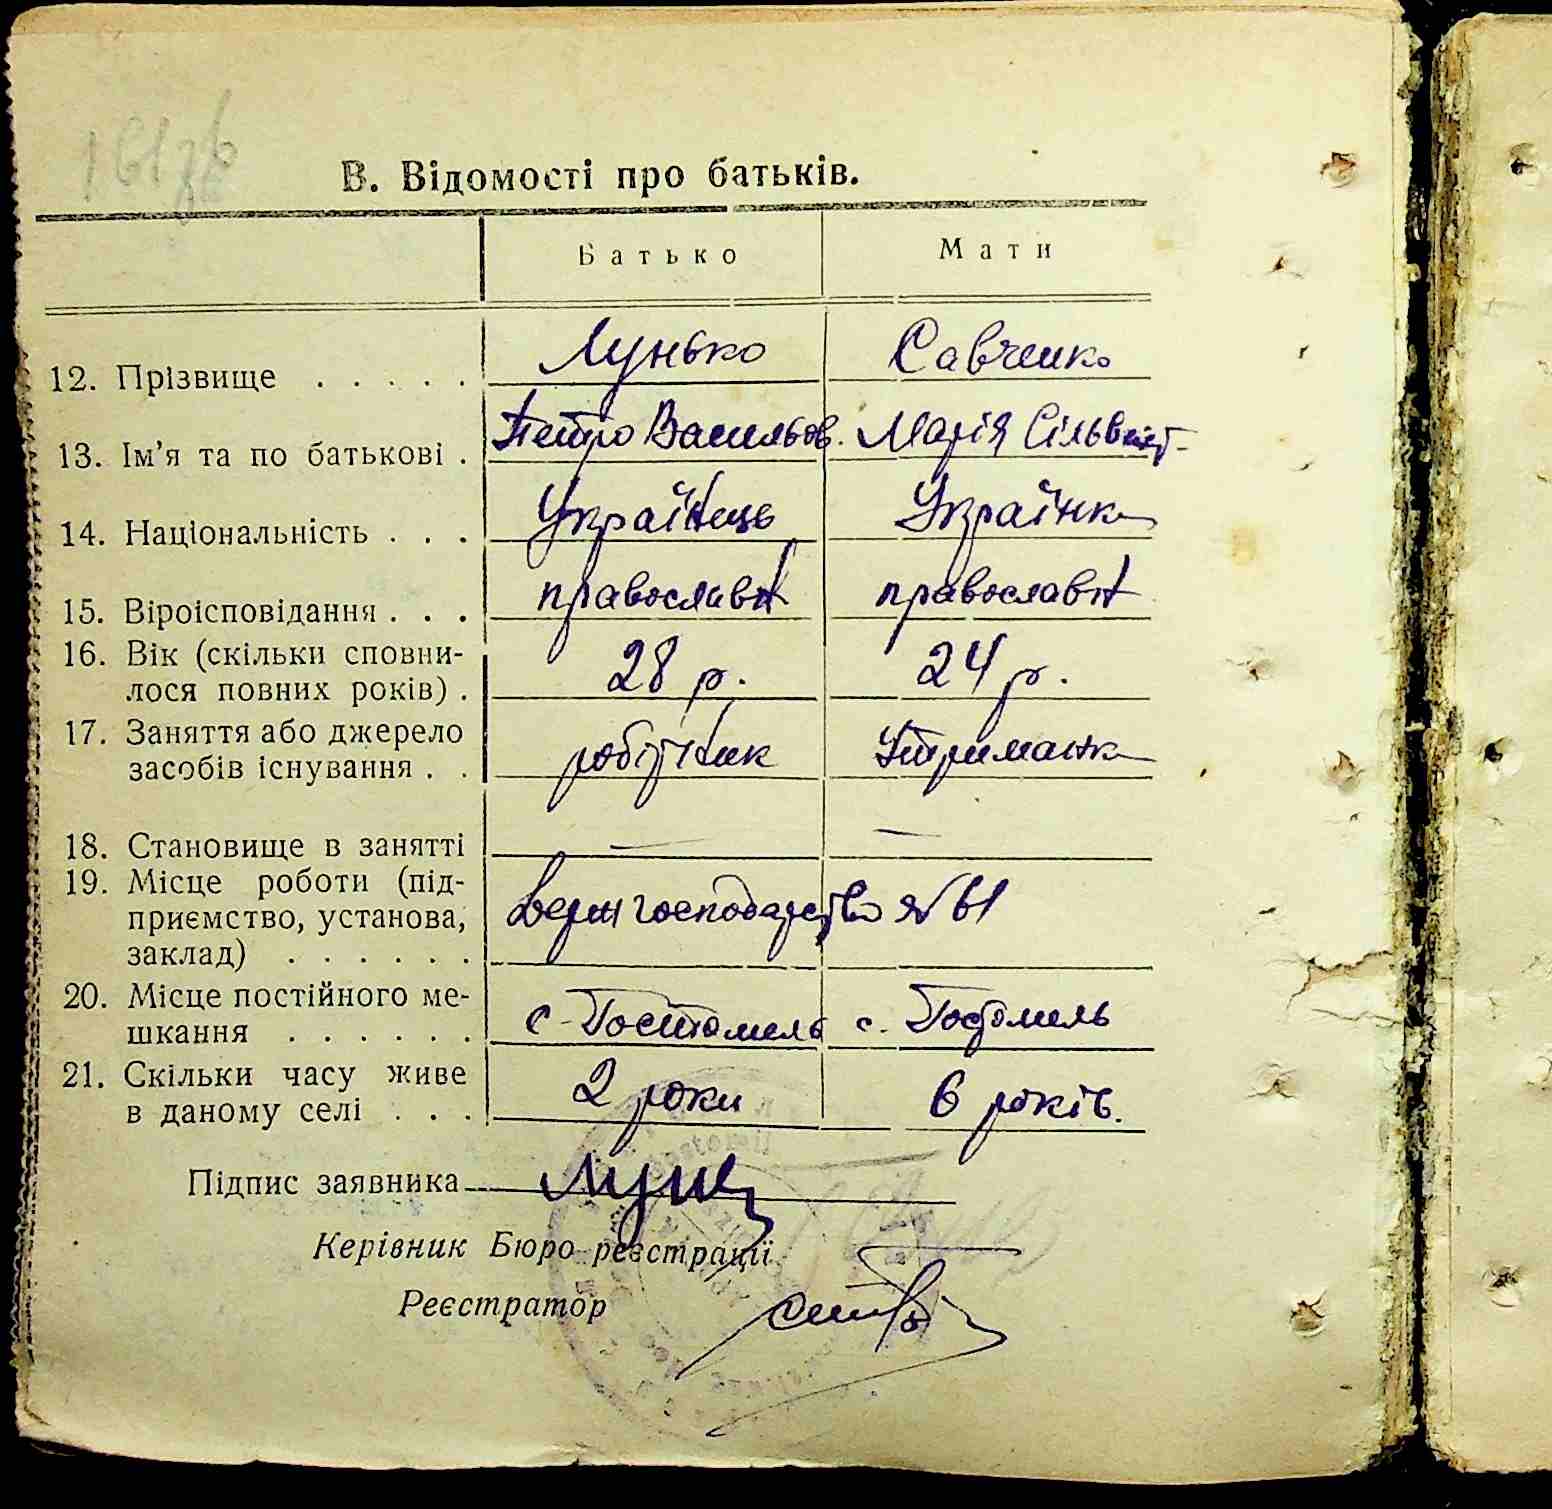 В. Відомості про батьків.
Батько Мати
12. Прізвище . . . . . Лунько Савченко
13. Ім’я та по батькові . Петро Васильов. Марія Сільвест-
14. Національність . . . Українець Українка
15. Віроісповідання . . . православн православн
16. Вік (скільки сповни-
лося повних років) . 28 р. 24 р.
17. Заняття або джерело
засобів існування . . робітник Утриманка
18. Становище в занятті — —
19. Місце роботи (під-
приємство, установа, господарство № 61
заклад) . . . . . .
20. Місце постійного ме-
шкання . . . . . . с. Гостомель с. Гостомель
21. Скільки часу живе
в даному селі . . . 2 роки 6 років.
Підпис заявника
Керівник Бюро реєстрації
Реєстратор